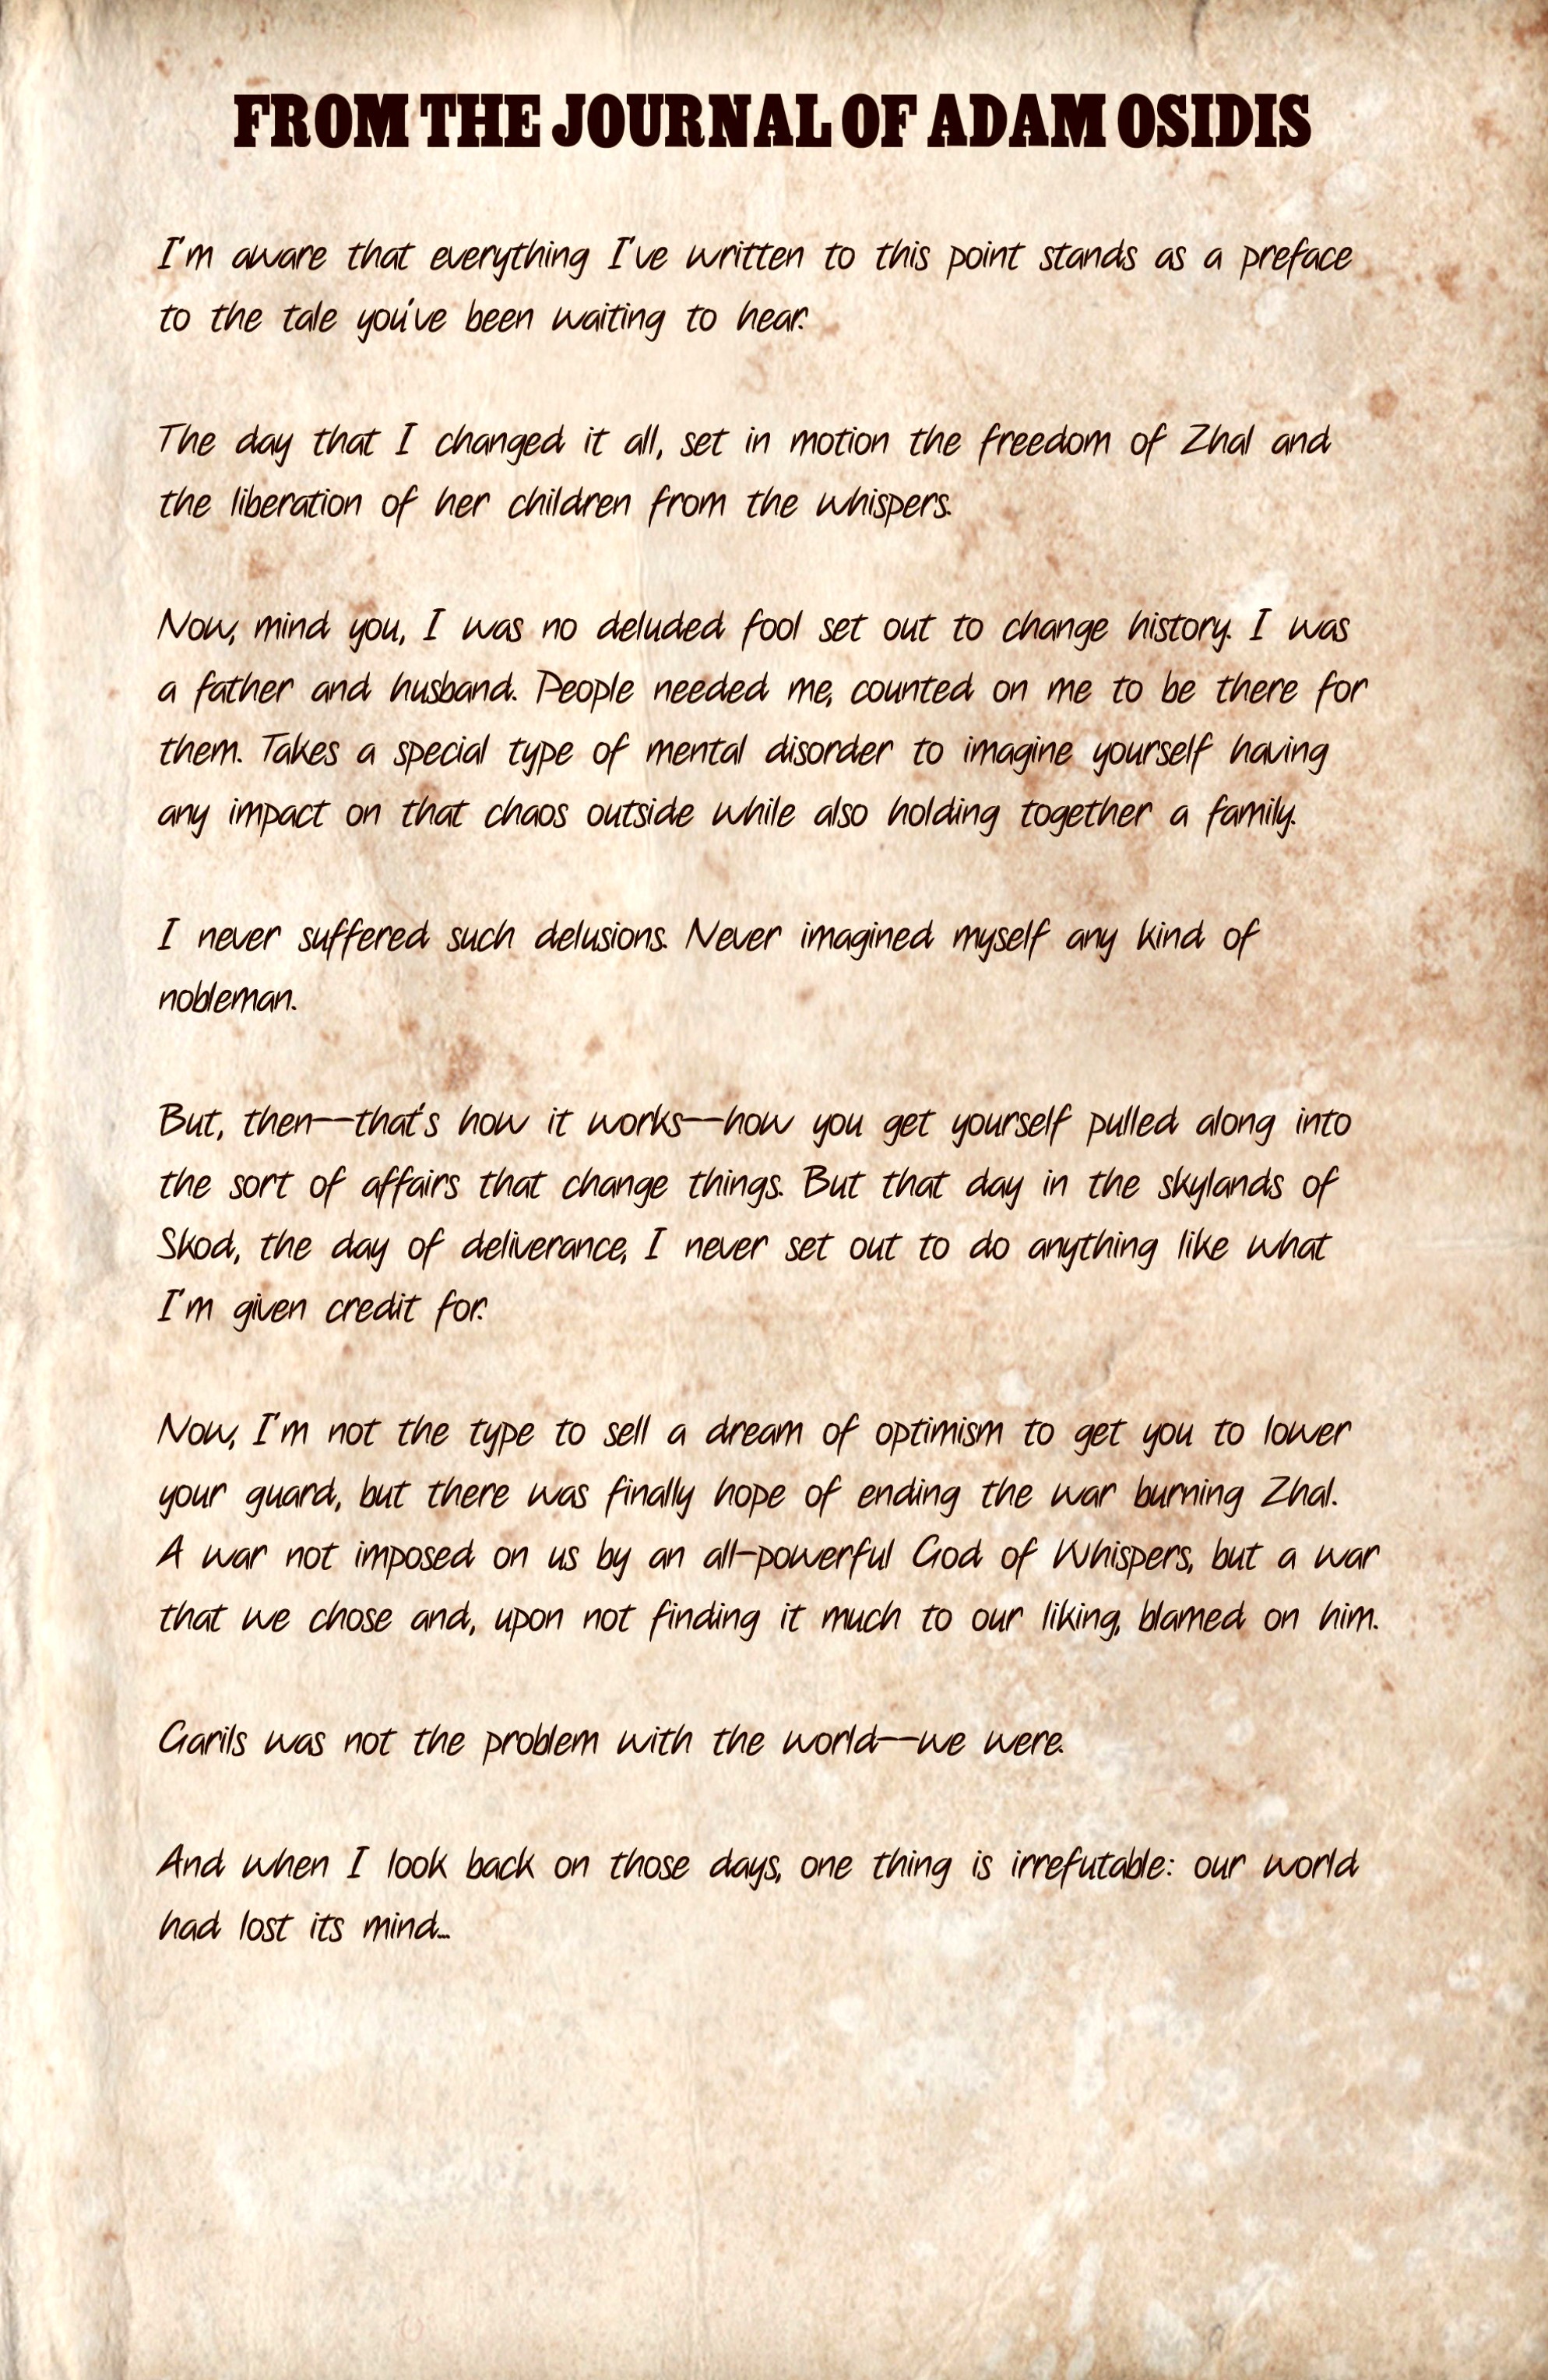 FROM THE JOURNAL OF ADAM OSIDIS
I'm aware that everything I've written to this point stands as a preface
to the tale you've been waiting to hear.
The day that I changed it all, set in motion the freedom of Zhal and
the liberation of her children from the whispers.
Now, mind you, I was no deluded fool set out to change history. I was
a father and husband. People needed me, counted on me to be there for
them. Takes a special type of mental disorder to imagine yourself having
any impact on that chaos outside while also holding together a family.
I never suffered such delusions. Never imagined myself any kind of
nobleman.
But, then--that's how it works--how you get yourself pulled along into
the sort of affairs that change things. But that day in the skylands of
Skod, the day of deliverance, I never set out to do anything like what
I'm given credit for.
Now, I'm not the type to sell a dream of optimism to get you to lower
your guard, but there was finally hope of ending the war burning Zhal.
A war not imposed on us by an all-powerful God of Whispers, but a war
that we chose and, upon not finding it much to our liking, blamed on him.
Garils was not the problem with the world--we were.
And when I look back on those days, one thing is irrefutable: our world
had lost its mind...